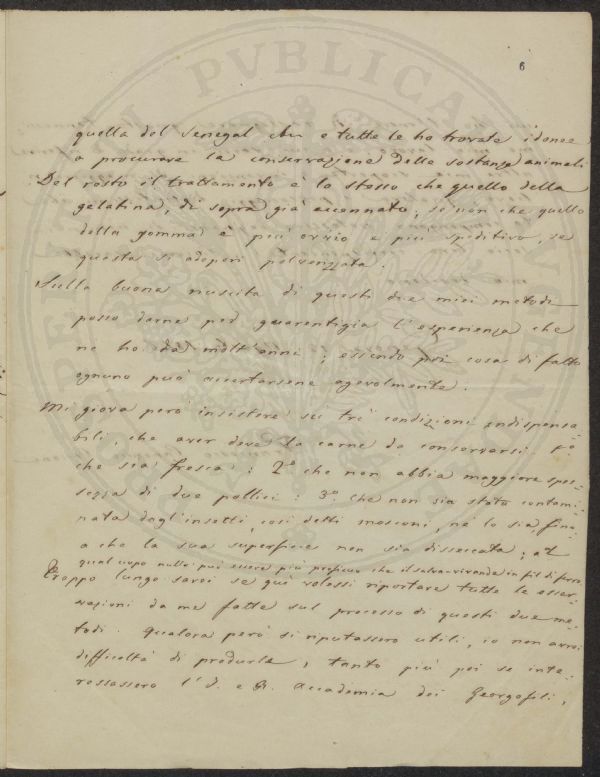 6
PVBLICA
quella del Senegal che e tutte le ho trovate idonee
a procurare la conservazione delle sostanze animali
Del resto il trattamento è lo stesso che quello della
gelatina, di sopra già accennato; se non che quello
della gomma è più ovvio e più speditivo, se
questa si adoperi polverizzata.
Sulla buona riuscita di questi due miei metodi
posso darne per guarentigia l'esperienza che
ne ho da molt'anni; essendo poi cosa di fatto
ognuno può accertarsene agevolmente.
Mi giova però insistere su tre condizioni indispensa=
bili, che aver deve la carne da conservarsi. 1º
che sia fresca: 2º che non abbia maggiore spes=
sezza di due pollici: 3º che non sia stata contami=
nata dagl'insetti così detti mosconi, nè lo sia, fino=
a che la sua superficie non sia disseccata; al
qual uopo nulla può essere più proficuo che il salva-vivande in fil di ferro
Troppo lungo sarei se quì volessi riportare tutte le osser=
vazioni da me fatte sul processo di questi due me=
todi. Qualora però si riputassero utili, io non avrei
difficoltà di produrle, tanto più poi se inte=
ressassero l'I. e R. Accademia dei Georgofili,